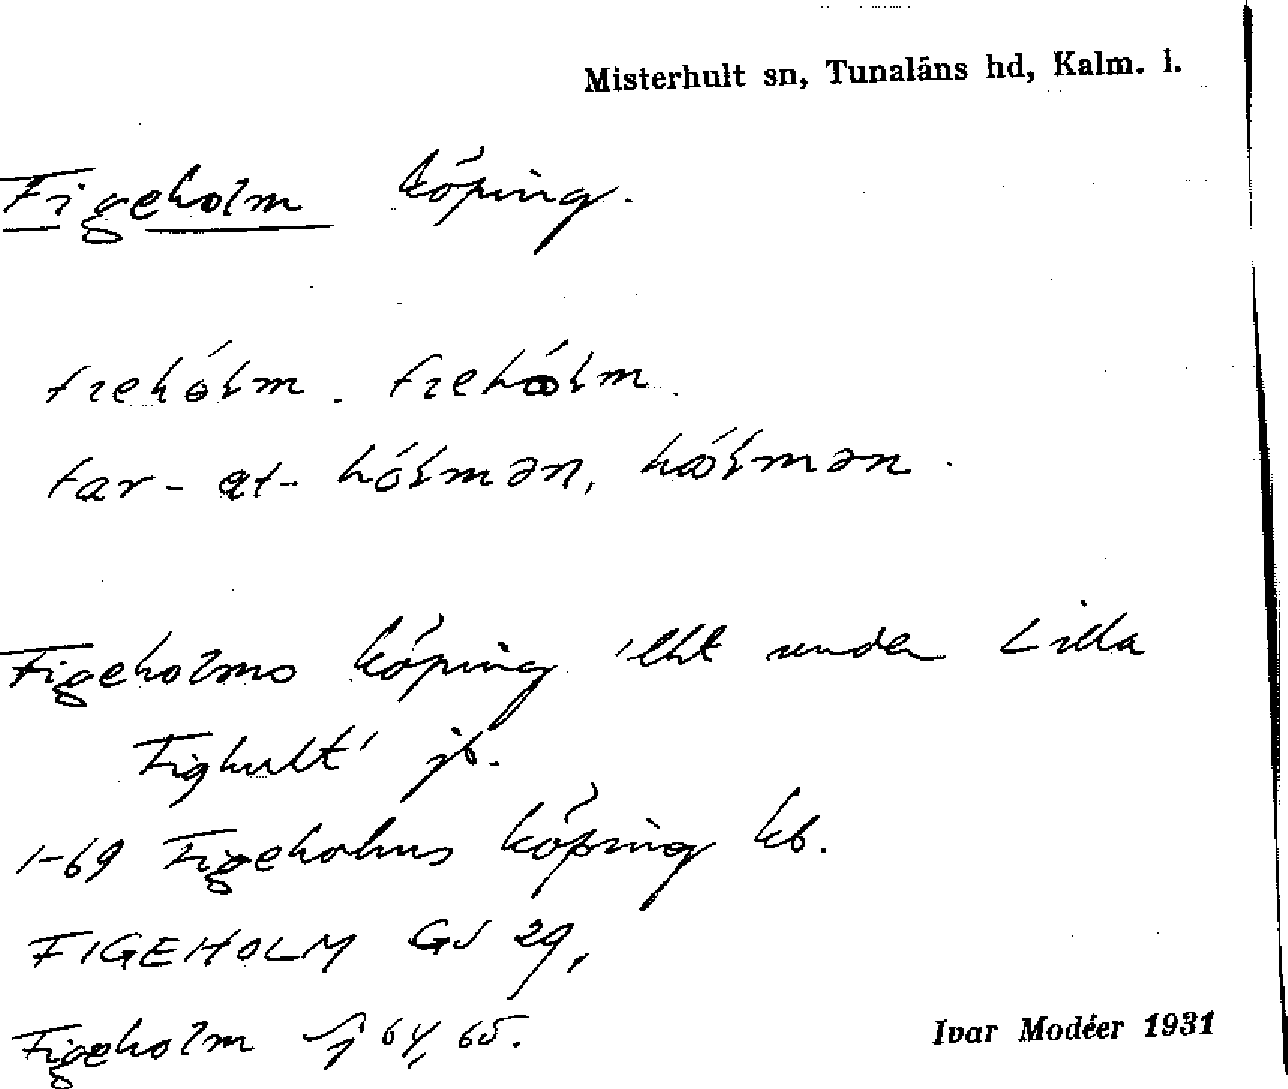 Misterhult sn, Tunaläns hd, Kalm. l.
Figeholm köping.
far- at-
Figeholms köping 'lht under Lilla
Fighult' jb.
1-69 Figeholms köping kb.
FIGEHOLM GS 29,
Figeholm 64, 65.
Ivar Modéer 1931